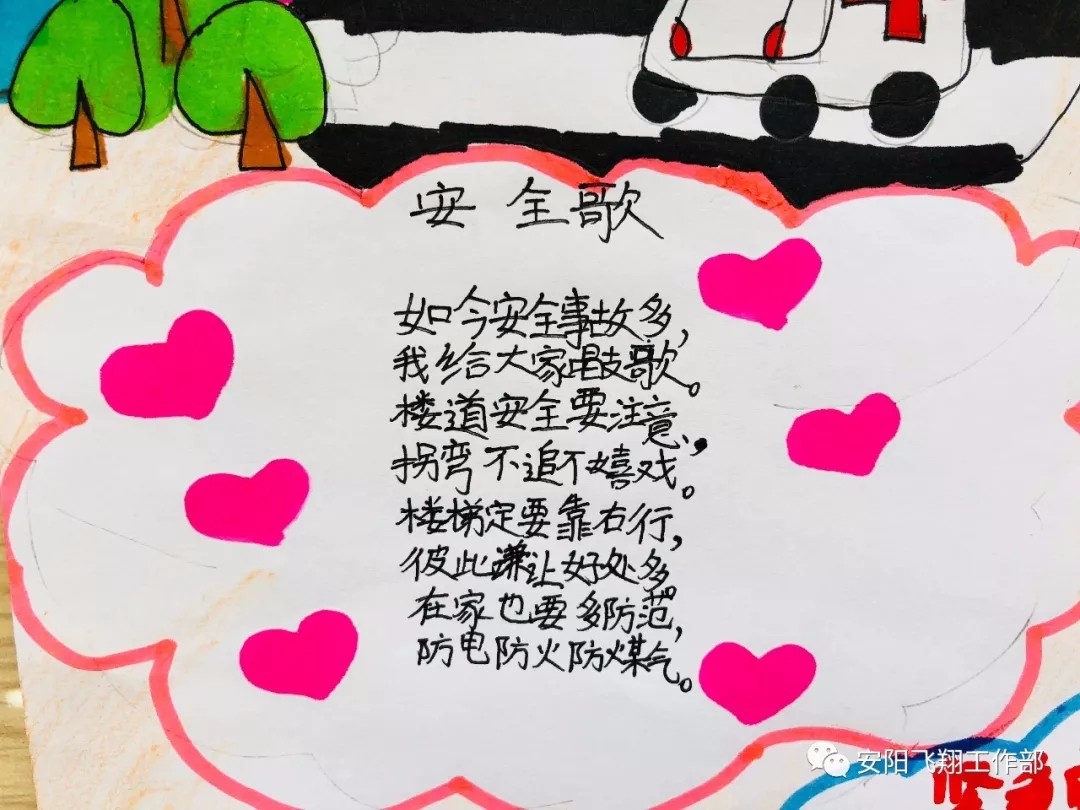 安全歌
如今安全事故多,
我给大家唱支歌。
楼道安全要注意,
拐弯不追不嬉戏。
楼梯定要靠右行,
彼此谦让好处多。
在家也要多防范,
防电防火防煤气。
安阳飞翔工作部